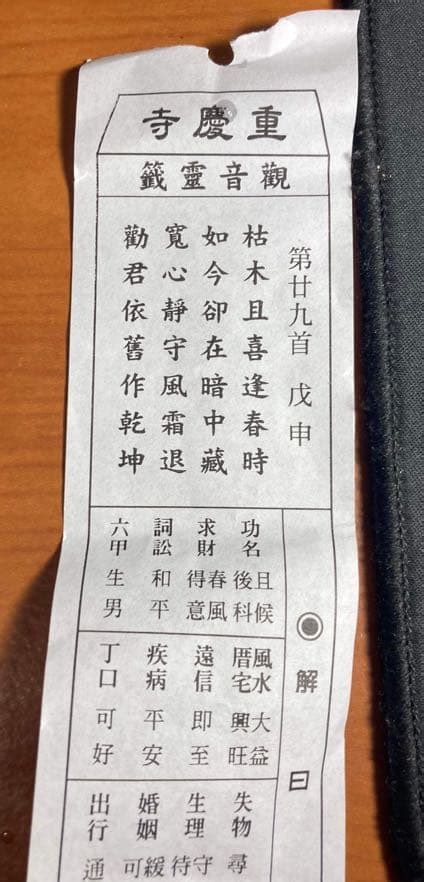 重慶寺
觀音靈籤
第廿九首 戊申
枯木且喜逢春時
如今卻在暗中藏
寬心靜守風霜退
勸君依舊作乾坤
解曰
功名 且候後科
求財 春風得意
詞訟 和平
六甲 生男
風水 大益
厝宅 興旺
遠信 即至
疾病 平安
丁口 可好
失物 尋
生理 守待
婚姻 可緩
出行 通